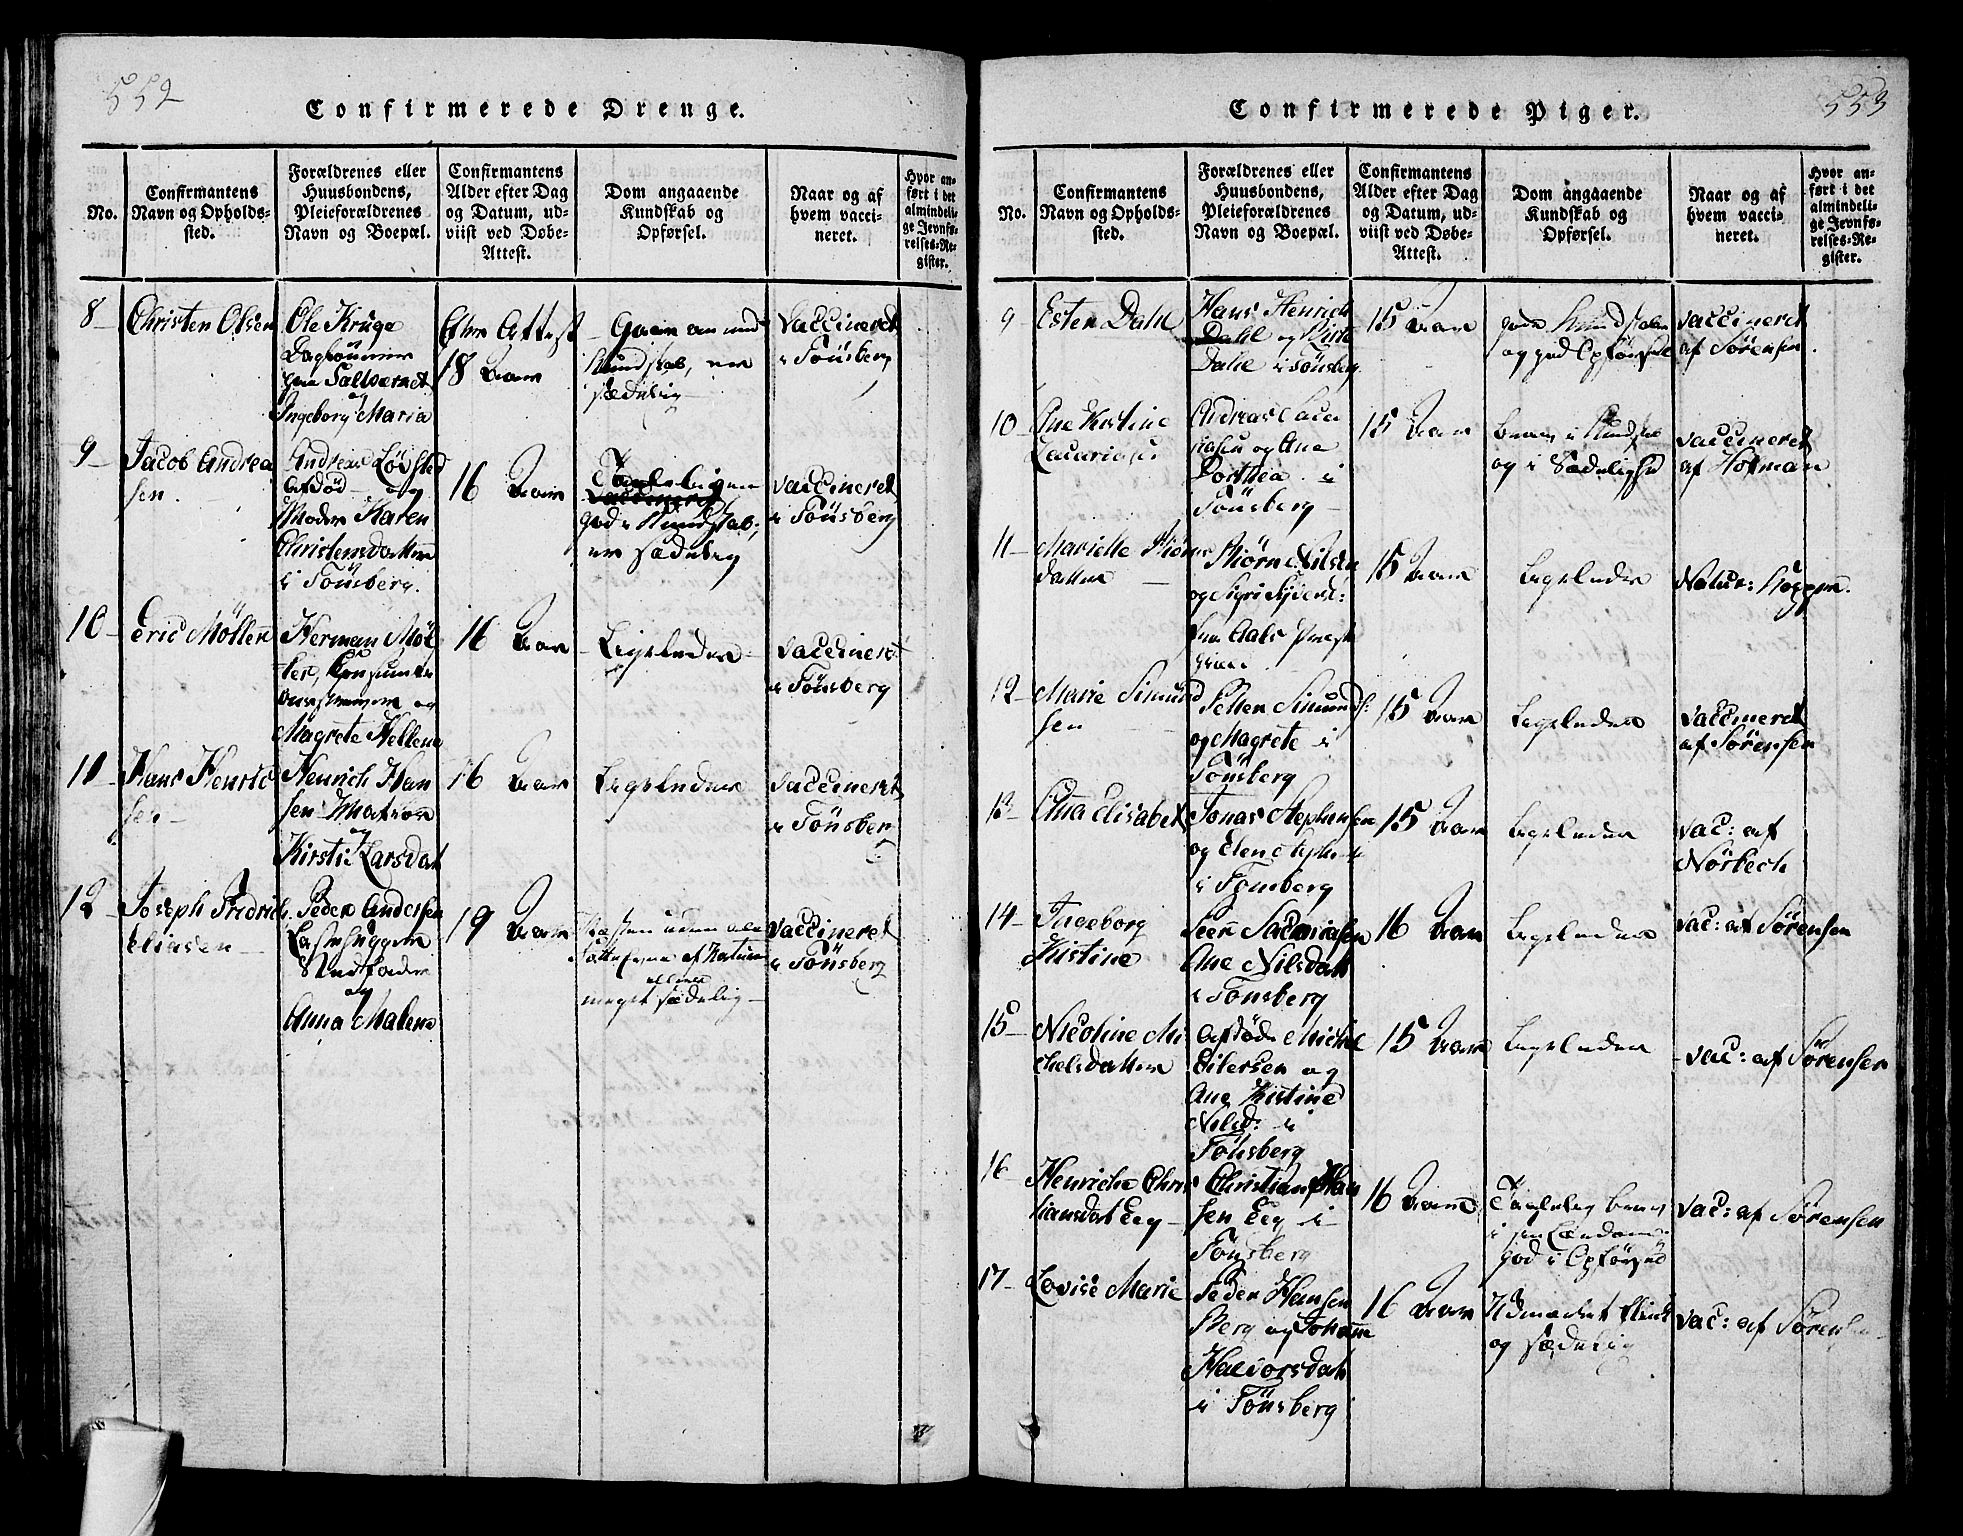 552
Confirmerede Drenge.
No.
Confirmantens
Navn og Opholds-
sted.
Forældrenes eller
Huusbondens,
Pleieforældrenes
Navn og Boepæl.
Confirmantens
Alder efter Dag
og Datum, ud-
viist ved Døbe-
Attest.
Dom angaaende
Kundskab og
Opførsel.
Naar og af
hvem vacci-
neret.
Hvor an-
ført i det
almindeli-
ge Jevnfø-
relses-Re-
gister.
8
Christen Olsen
Ole Kruge
paa Saltværnet
og
Ingeborg Maria
Efter Attest
18 Aar
Kundskab, er
sædelig
Vaccineret
i Tönsberg
9
Jacob Andrea
sen.
Andreas Lövsted
afdød og
Moder Karen
Christensdatter
i Tönsberg.
16 Aar
Taalelig
god i Kundskab,
er sædelig
vaccineret
i Tönsberg
10
Eric Möller
Herman Möl
ler, Consumt
og
Magrete Hellene
16 Aar
Ligeledes
vaccineret
i Tönsberg
11
Hans Henric
sen
Henrich Han
sen Matros
og
Kirstie Larsdat
16 Aar
Ligeledes
vaccineret
i Tönsberg
12
Joseph Fridrich
Eliasen
Peder Andersen
Stedfader
og
Anna Malene
19 Aar
Næsten uden al
af Naturen
ellers
meget sædelig
vaccineret
i Tönsberg
553
Confirmerede Piger.
No.
Confirmantens
Navn og Opholds-
sted.
Forældrenes eller
Huusbondens,
Pleieforældrenes
Navn og Boepæl.
Confirmantens
Alder efter Dag
og Datum, ud-
viist ved Døbe-
Attest.
Dom angaaende
Kundskab og
Opførsel.
Naar og af
hvem vacci-
neret.
Hvor an-
ført i det
almindeli-
ge Jevnfø-
relses-Re-
gister.
9
Ester Dahl
Hans Henrich
Dahl og Birte
Dahl i Tönsberg
15 Aar
gode Kundskaber
og god Opførsel
vaccineret
af Sørensen
10
Ane Kristine
Zacariasen
Andreas Zaca
riasen og Ane
Dorthea i
Tönsberg
15 Aar
og i Sædelighed
vaccineret
af Hofman
11
Marielle Biørns
datter
Biørn Nilsen
og Sigri
15 Aar
Ligeledes
Natur: Kopper.
12
Marie Simund
sen
Petter Simunds:
og Magrete i
Tönsberg
15 Aar
Ligeledes
vaccineret
af Sørensen
13
Ana Elisabet
Jonas Stephensen
og Elen
i Tönsberg
15 Aar
Ligeledes
vac: af
Nörbech
14
Ingeborg
Kistine
Peer Sacariasen
Ane Nilsdat
i Tönsberg
16 Aar
Ligeledes
vac: af Sørensen
15
Nicoline Mi
chelsdatter
afdöde Michel
Eilersen og
Ane Kistine
Nilsd: i
Tönsberg
15 Aar
Ligeledes
vac: af Sørensen
16
Henriche Chris
tiansdat Eeg
Christian Han
sen Eeg i
Tönsberg
16 Aar
Taalelig
i sin
god i Opførsel
vac: af Sørensen
17
Lovise Marie
Peder Hansen
Berg og Johanne
Halvorsdat
i Tönsberg
16 Aar
Udmærket flink
og sædelig
vac: af Sørensen